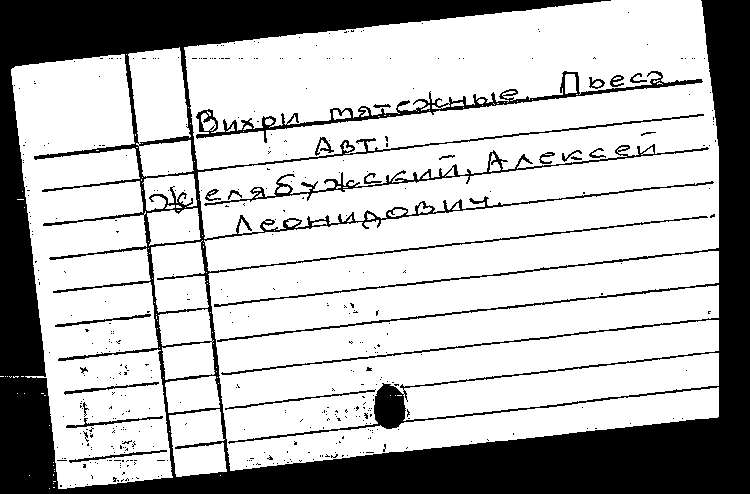 Вихри мятежные. Пьеса
Авт.:
Желябужский, Алексей
Леонидович.